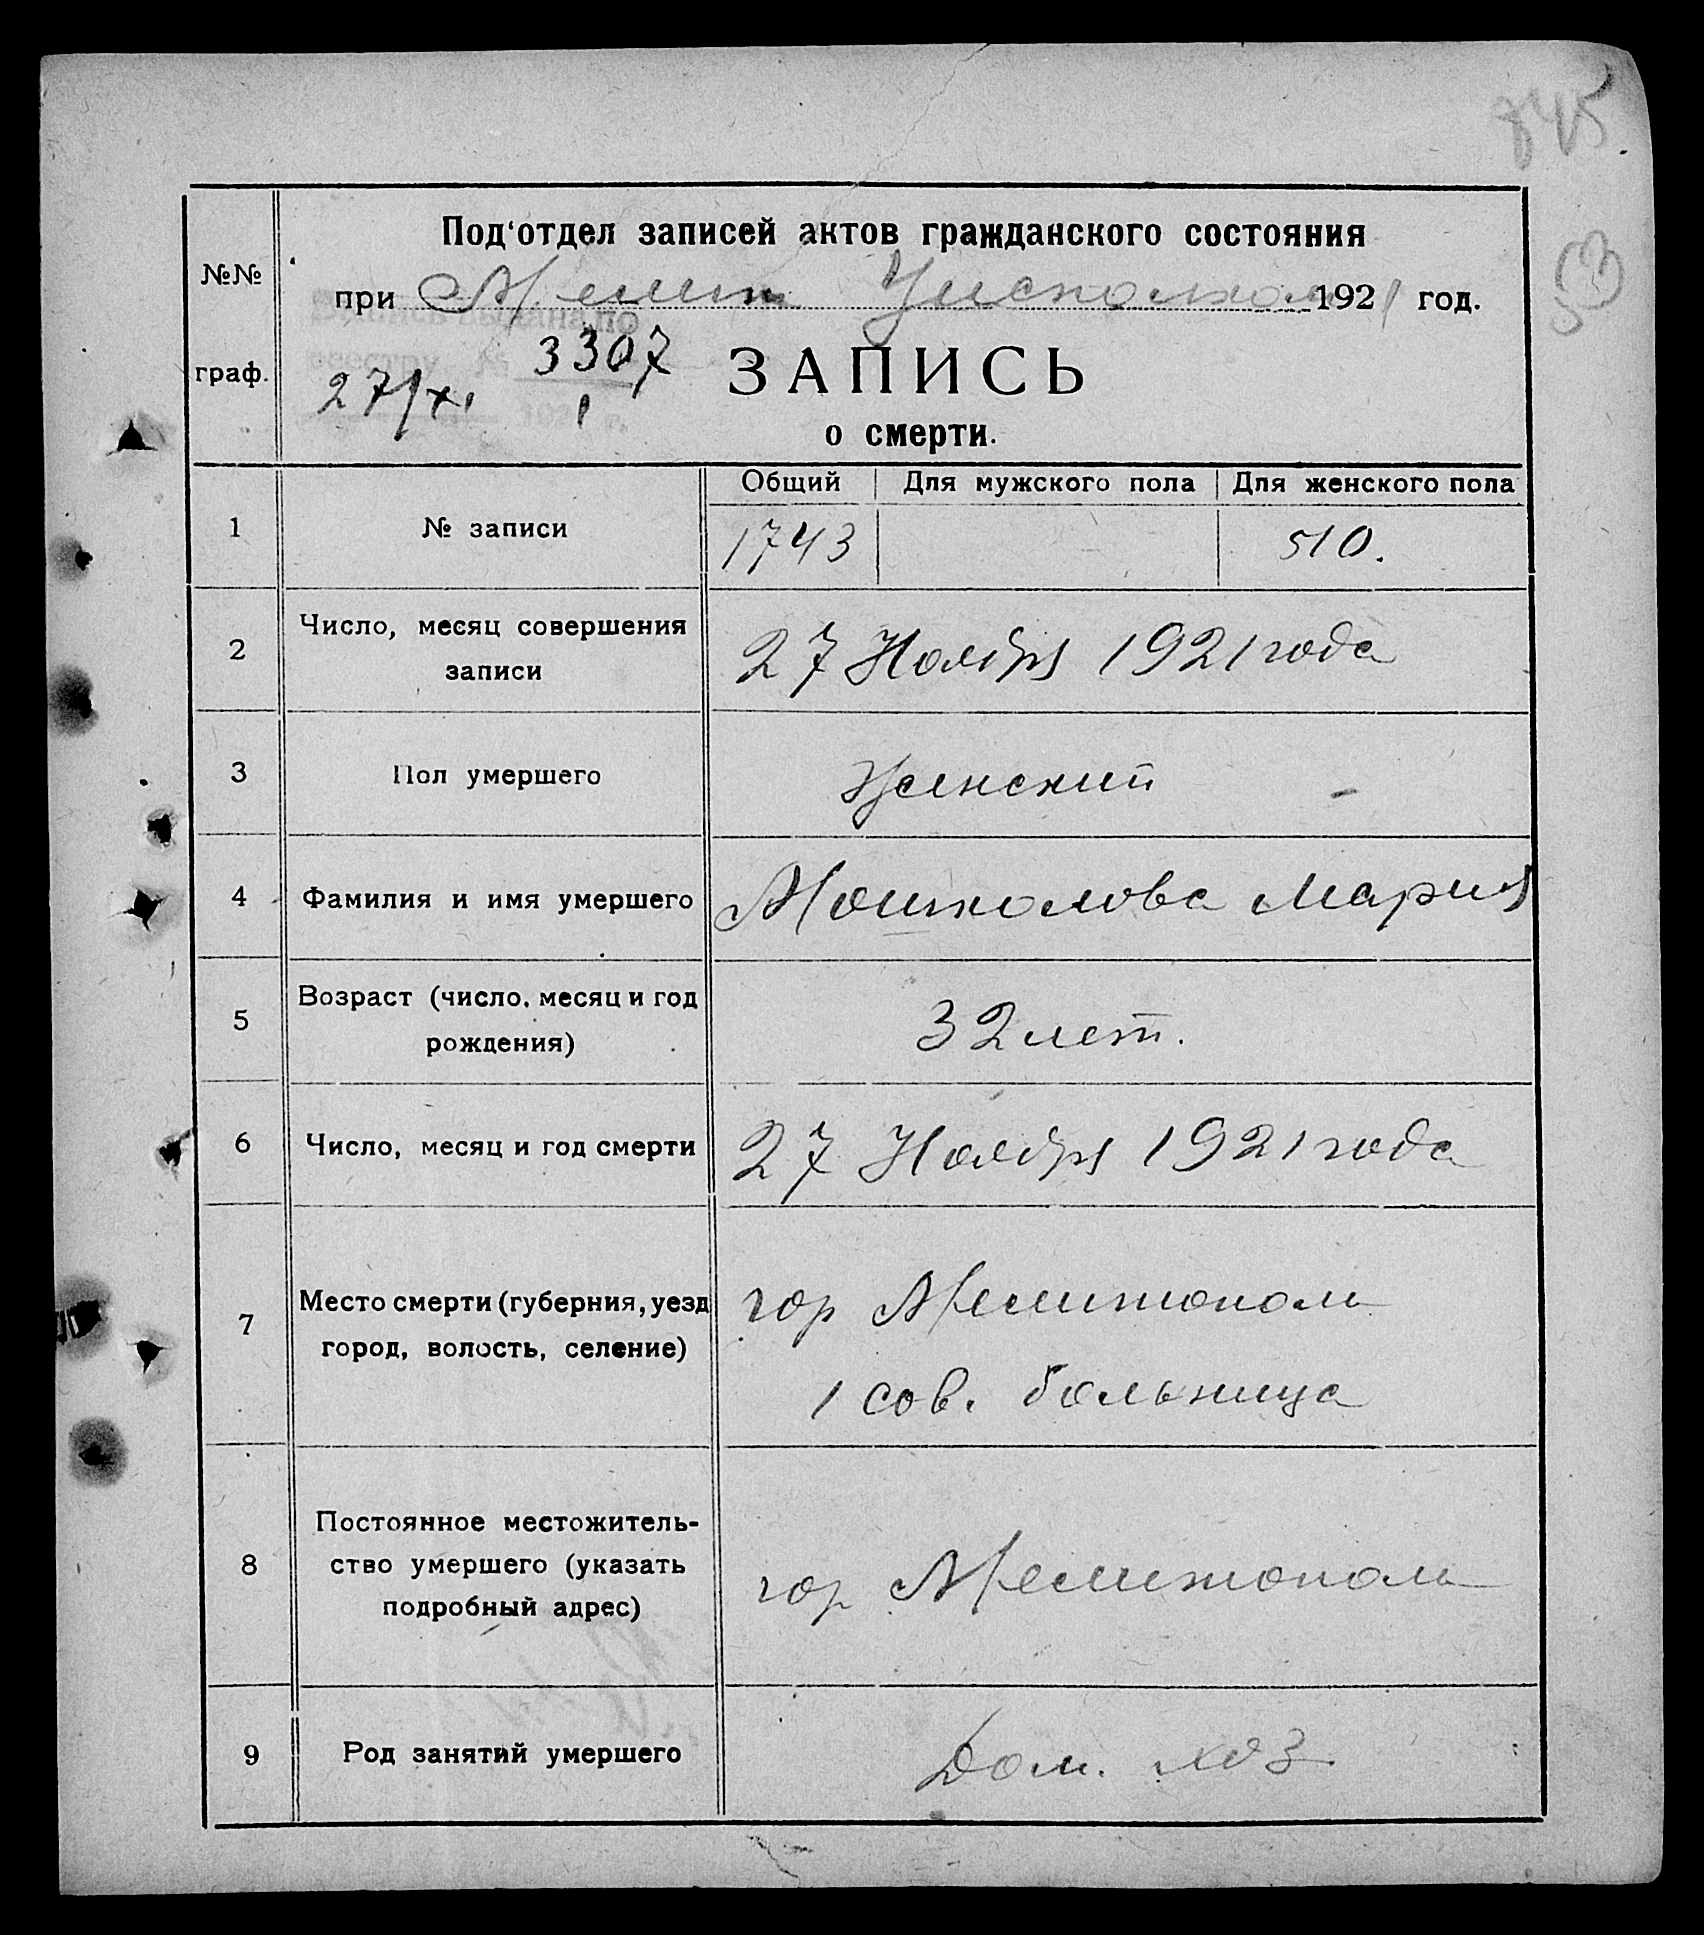 845
53
Под'отдел записей актов гражданского состояния
№№
при Мелит Уисполком 1921 год.
Выпись выдана по
реестру № 3307
27/XI 192 г.
граф.
ЗАПИСЬ
о смерти.
Общий Для мужского пола Для женского пола
1 № записи 1743 510.
2 Число, месяц совершения
записи
27 Ноября 1921 года
3 Пол умершего Женский
4 Фамилия и имя умершего Мария
5 Возраст (число, месяц и год
рождения)
32 лет.
6 Число, месяц и год смерти 27 Ноября 1921 года
7 Место смерти (губерния, уезд
город, волость, селение)
гор Мелитополь
1 сов. больница
8 Постоянное местожитель-
ство умершего (указать
подробный адрес)
гор Мелитополь
9 Род занятий умершего Дом. хоз